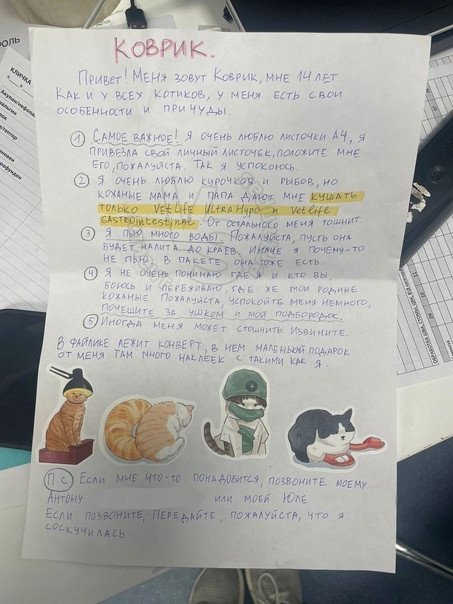 КОВРИК.
Привет! Меня зовут Коврик, мне 14 лет.
Как и у всех котиков, у меня есть свои
особенности и причуды.
① Самое важное! Я очень люблю листочки А4, я
привезла свой личный листочек, положите мне
его, пожалуйста. Так я успокоюсь.
② Я очень люблю курочков и рыбов, но
кожаные мама и папа дают мне кушать
только VetLife UltraHypo и Vetlife
Gastrointestinal. От остального меня тошнит.
③ Я пью много воды. Пожалуйста, пусть она
будет налита до краев, иначе я почему-то
не пью. В пакете она тоже есть.
④ Я не очень понимаю где я и кто вы,
боюсь и переживаю, где же мои родные
кожаные. Пожалуйста, успокойте меня немного,
почешите за ушком и мой подбородок.
⑤ Иногда меня может стошнить. Извините.
В файлике лежит конверт, в нем маленький подарок
от меня. Там много наклеек с такими как я.
П.С Если мне что-то понадобится, позвоните моему
Антону или моей Юле
Если позвоните, передайте, пожалуйста, что я
соскучилась
КЛИЧКА